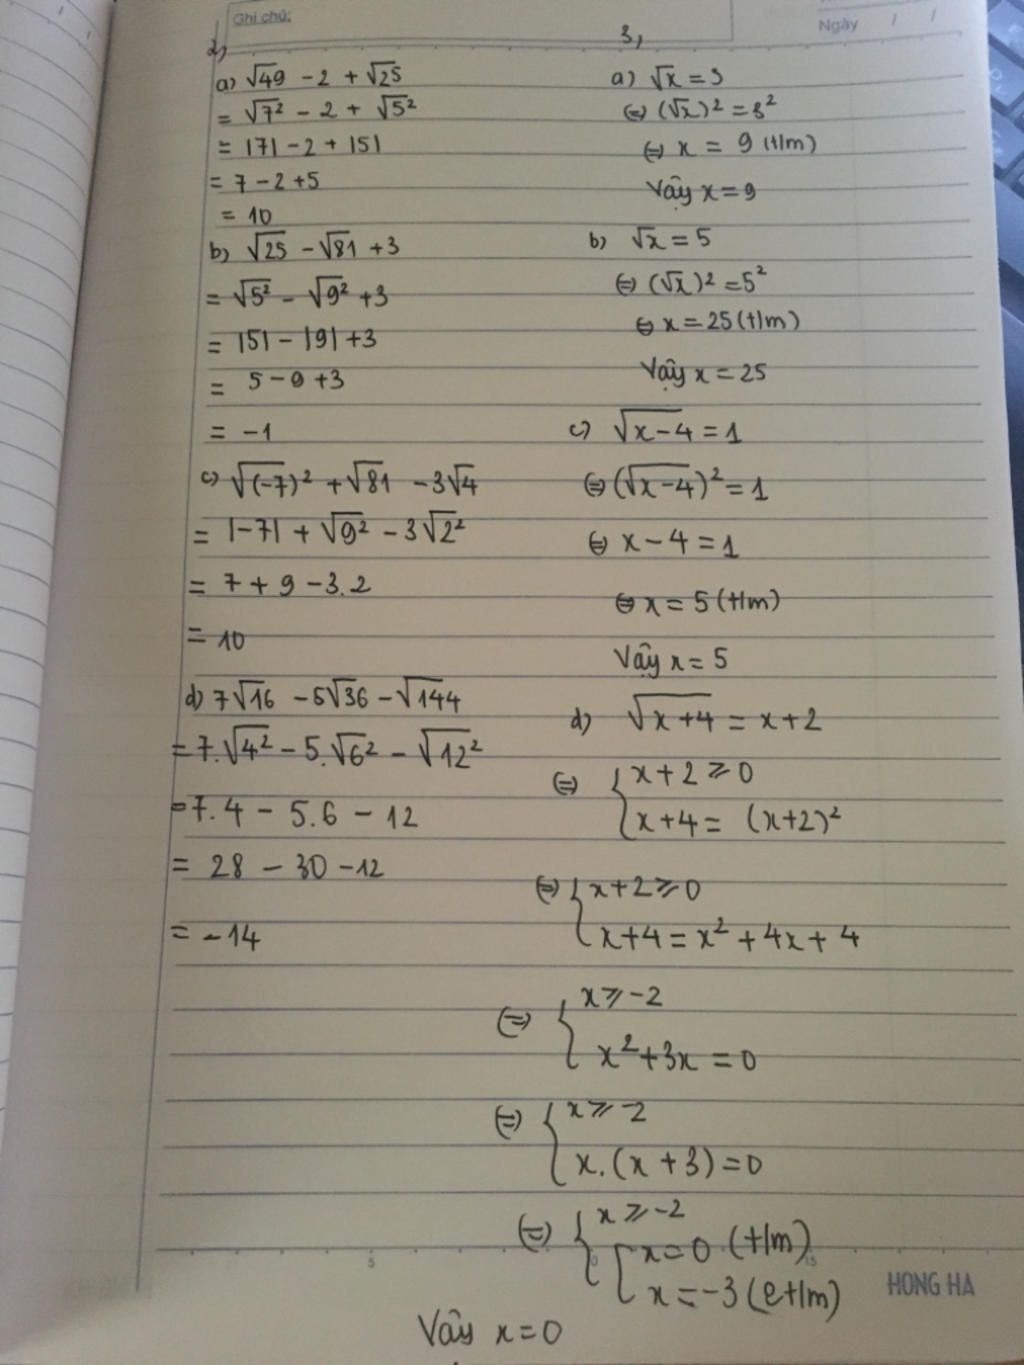 Ghi chú:
Ngày / /
2,
a) √49 - 2 + √25
= √7² - 2 + √5²
= |7| - 2 + |5|
= 7 - 2 + 5
= 10
b) √25 - √81 + 3
= √5² - √9² + 3
= |5| - |9| + 3
= 5 - 9 + 3
= -1
c) √(-7)² + √81 - 3√4
= |-7| + √9² - 3√2²
= 7 + 9 - 3.2
= 10
d) 7√16 - 5√36 - √144
= 7.√4² - 5.√6² - √12²
= 7.4 - 5.6 - 12
= 28 - 30 - 12
= -14
3,
a) √x = 3
(=) (√x)² = 3²
(=) x = 9 (t/m)
Vậy x = 9
b) √x = 5
(=) (√x)² = 5²
(=) x = 25 (t/m)
Vậy x = 25
c) √x-4 = 1
(=) (√x-4)² = 1
(=) x - 4 = 1
(=) x = 5 (t/m)
Vậy x = 5
d) √x+4 = x + 2
(=) { x + 2 ≥ 0
x + 4 = (x+2)²
(=) { x + 2 ≥ 0
x + 4 = x² + 4x + 4
(=) { x ≥ -2
x² + 3x = 0
(=) { x ≥ -2
x.(x + 3) = 0
(=) { x ≥ -2
[ x = 0 (t/m)
x = -3 (et/m)
Vậy x = 0
5 10 15
HONG HA